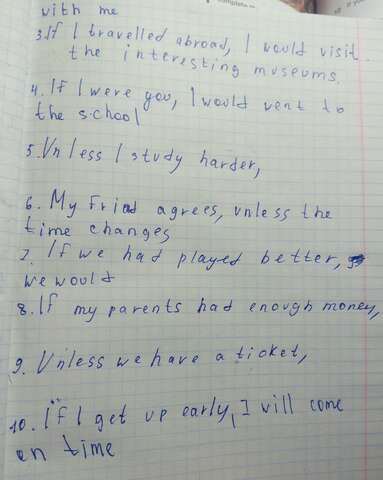 with me
3. If I travelled abroad, I would visit
the interesting museums.
4. If I were you, I would went to
the school
5. Unless I study harder,
6. My Friad agrees, unless the
time changes
7. If we had played better,
we would
8. If my parents had enough money,
9. Unless we have a ticket,
10. If I get up early, I will come
on time